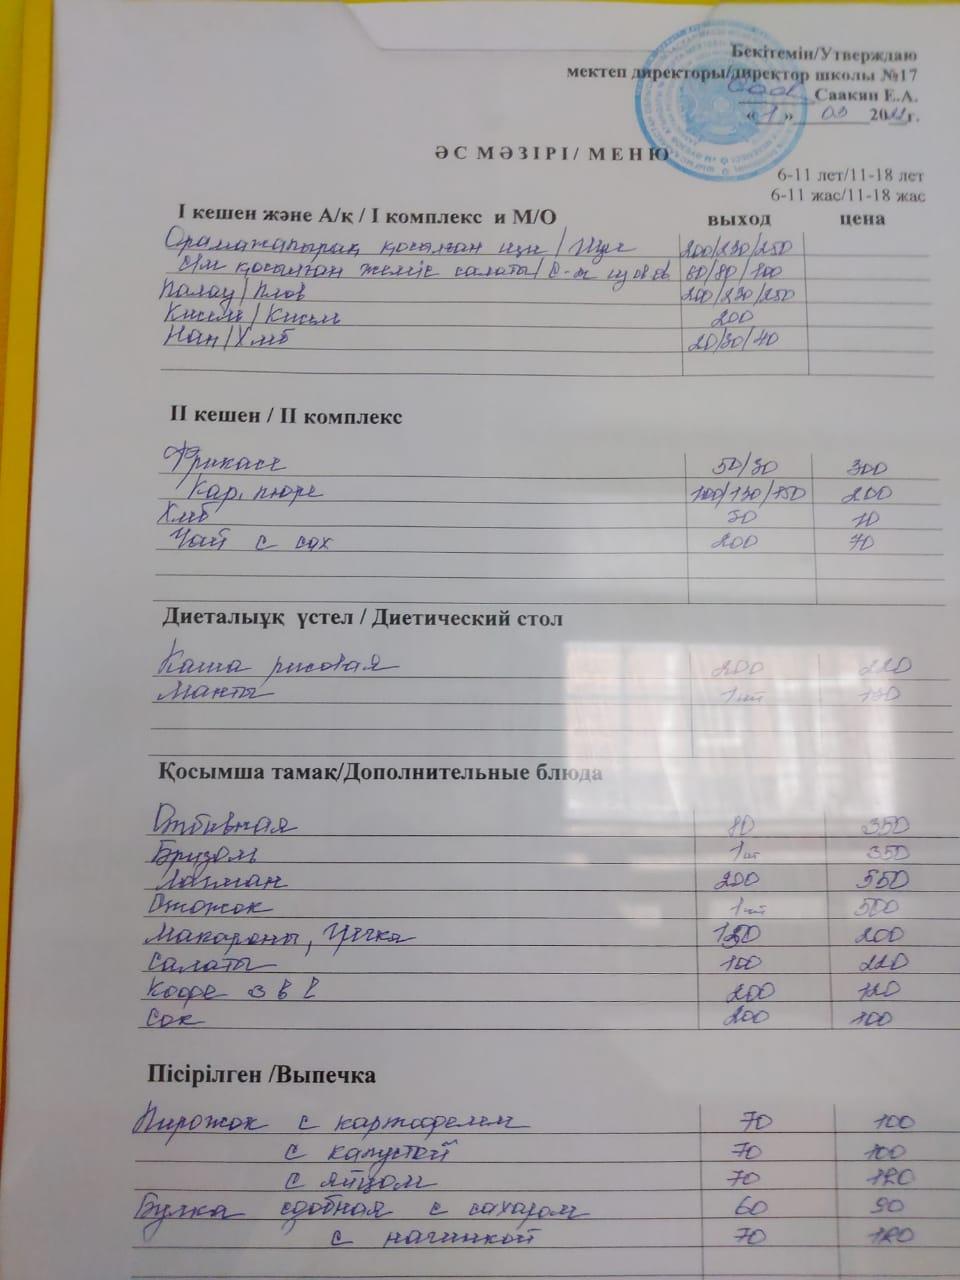 Бекітемін/Утверждаю
мектеп директоры/директор школы №17
Саакян Е.А.
«1» 03 20 г.
ӘС МӘЗІРІ/ МЕНЮ
6-11 лет/11-18 лет
6-11 жас/11-18 жас
I кешен және А/қ / I комплекс и М/О выход цена
Орамжапырақ қосылған щи / Щи 200/230/250
қосылған жеміс салаты / 60/80/100
Палау/Плов 200/230/250
Кисель/Кисель 200
Нан/Хлеб 20/30/40
II кешен / II комплекс
Фрикасе 50/30 300
Кар. пюре 100/130/150 200
Хлеб 30 10
Чай с сах 200 70
Диеталыұқ үстел / Диетический стол
Каша рисовая 200 220
Манты 1шт 150
Қосымша тамақ/Дополнительные блюда
Отбивная 80 350
Бризоль 1шт 350
Лагман 200 550
1шт 500
Макароны, гречка 150 200
Салаты 100 220
Кофе 3 в 1 200 120
Сок 200 100
Пісірілген /Выпечка
Пирожок с картофелем 70 100
с капустой 70 100
с яйцом 70 120
Булка сдобная с сахаром 60 90
с начинкой 70 120